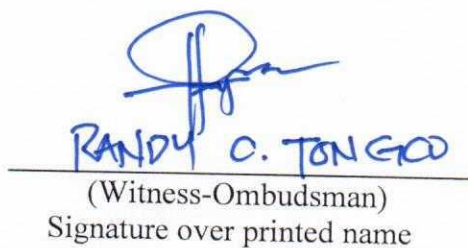 RANDY C. TONGCO
(Witness-Ombudsman)
Signature over printed name